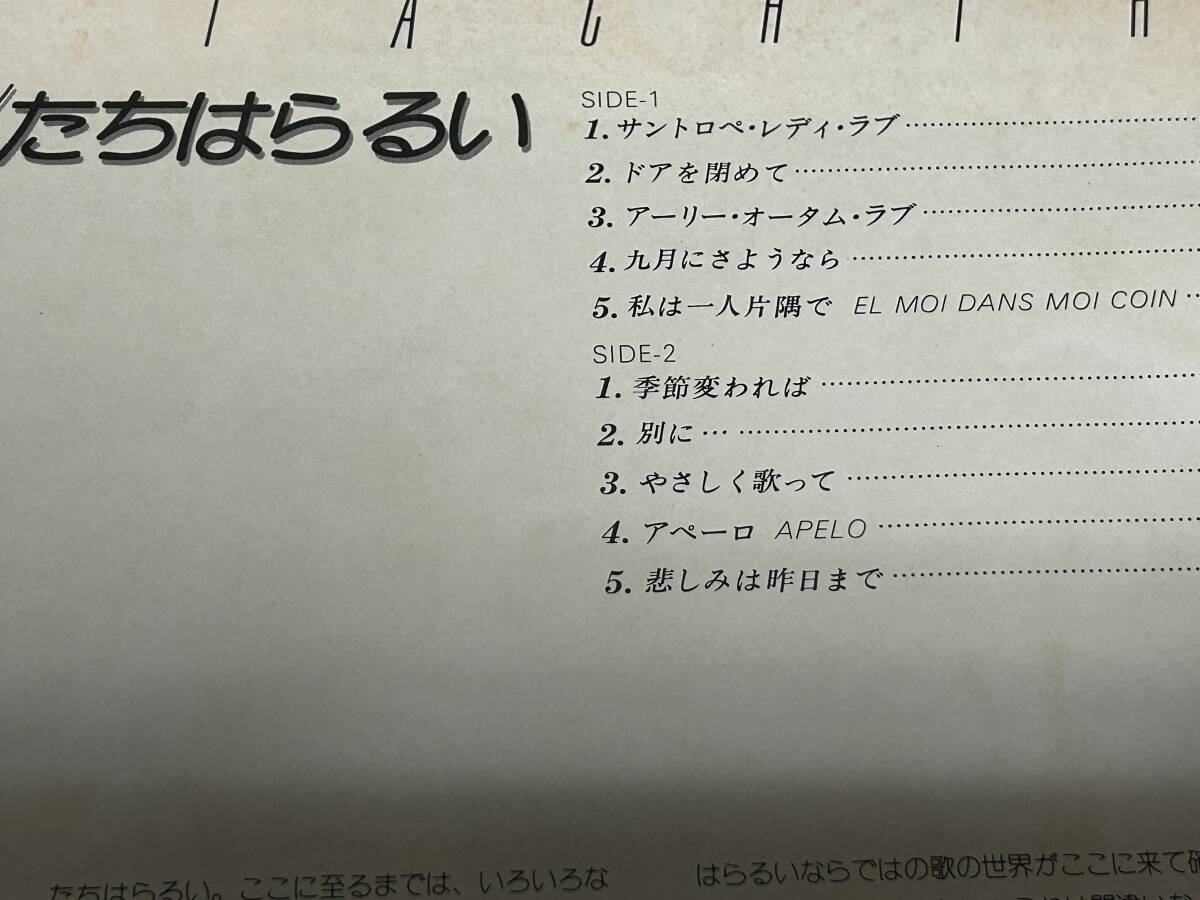 たちはらるい
SIDE-1
1. サントロペ・レディ・ラブ
2. ドアを閉めて
3. アーリー・オータム・ラブ
4. 九月にさようなら
5. 私は一人片隅で EL MOI DANS MOI COIN
SIDE-2
1. 季節変われば
2. 別に…
3. やさしく歌って
4. アペーロ APELO
5. 悲しみは昨日まで
たちはらるい。ここに至るまでは、いろいろな
はらるいならではの歌の世界がここに来て確